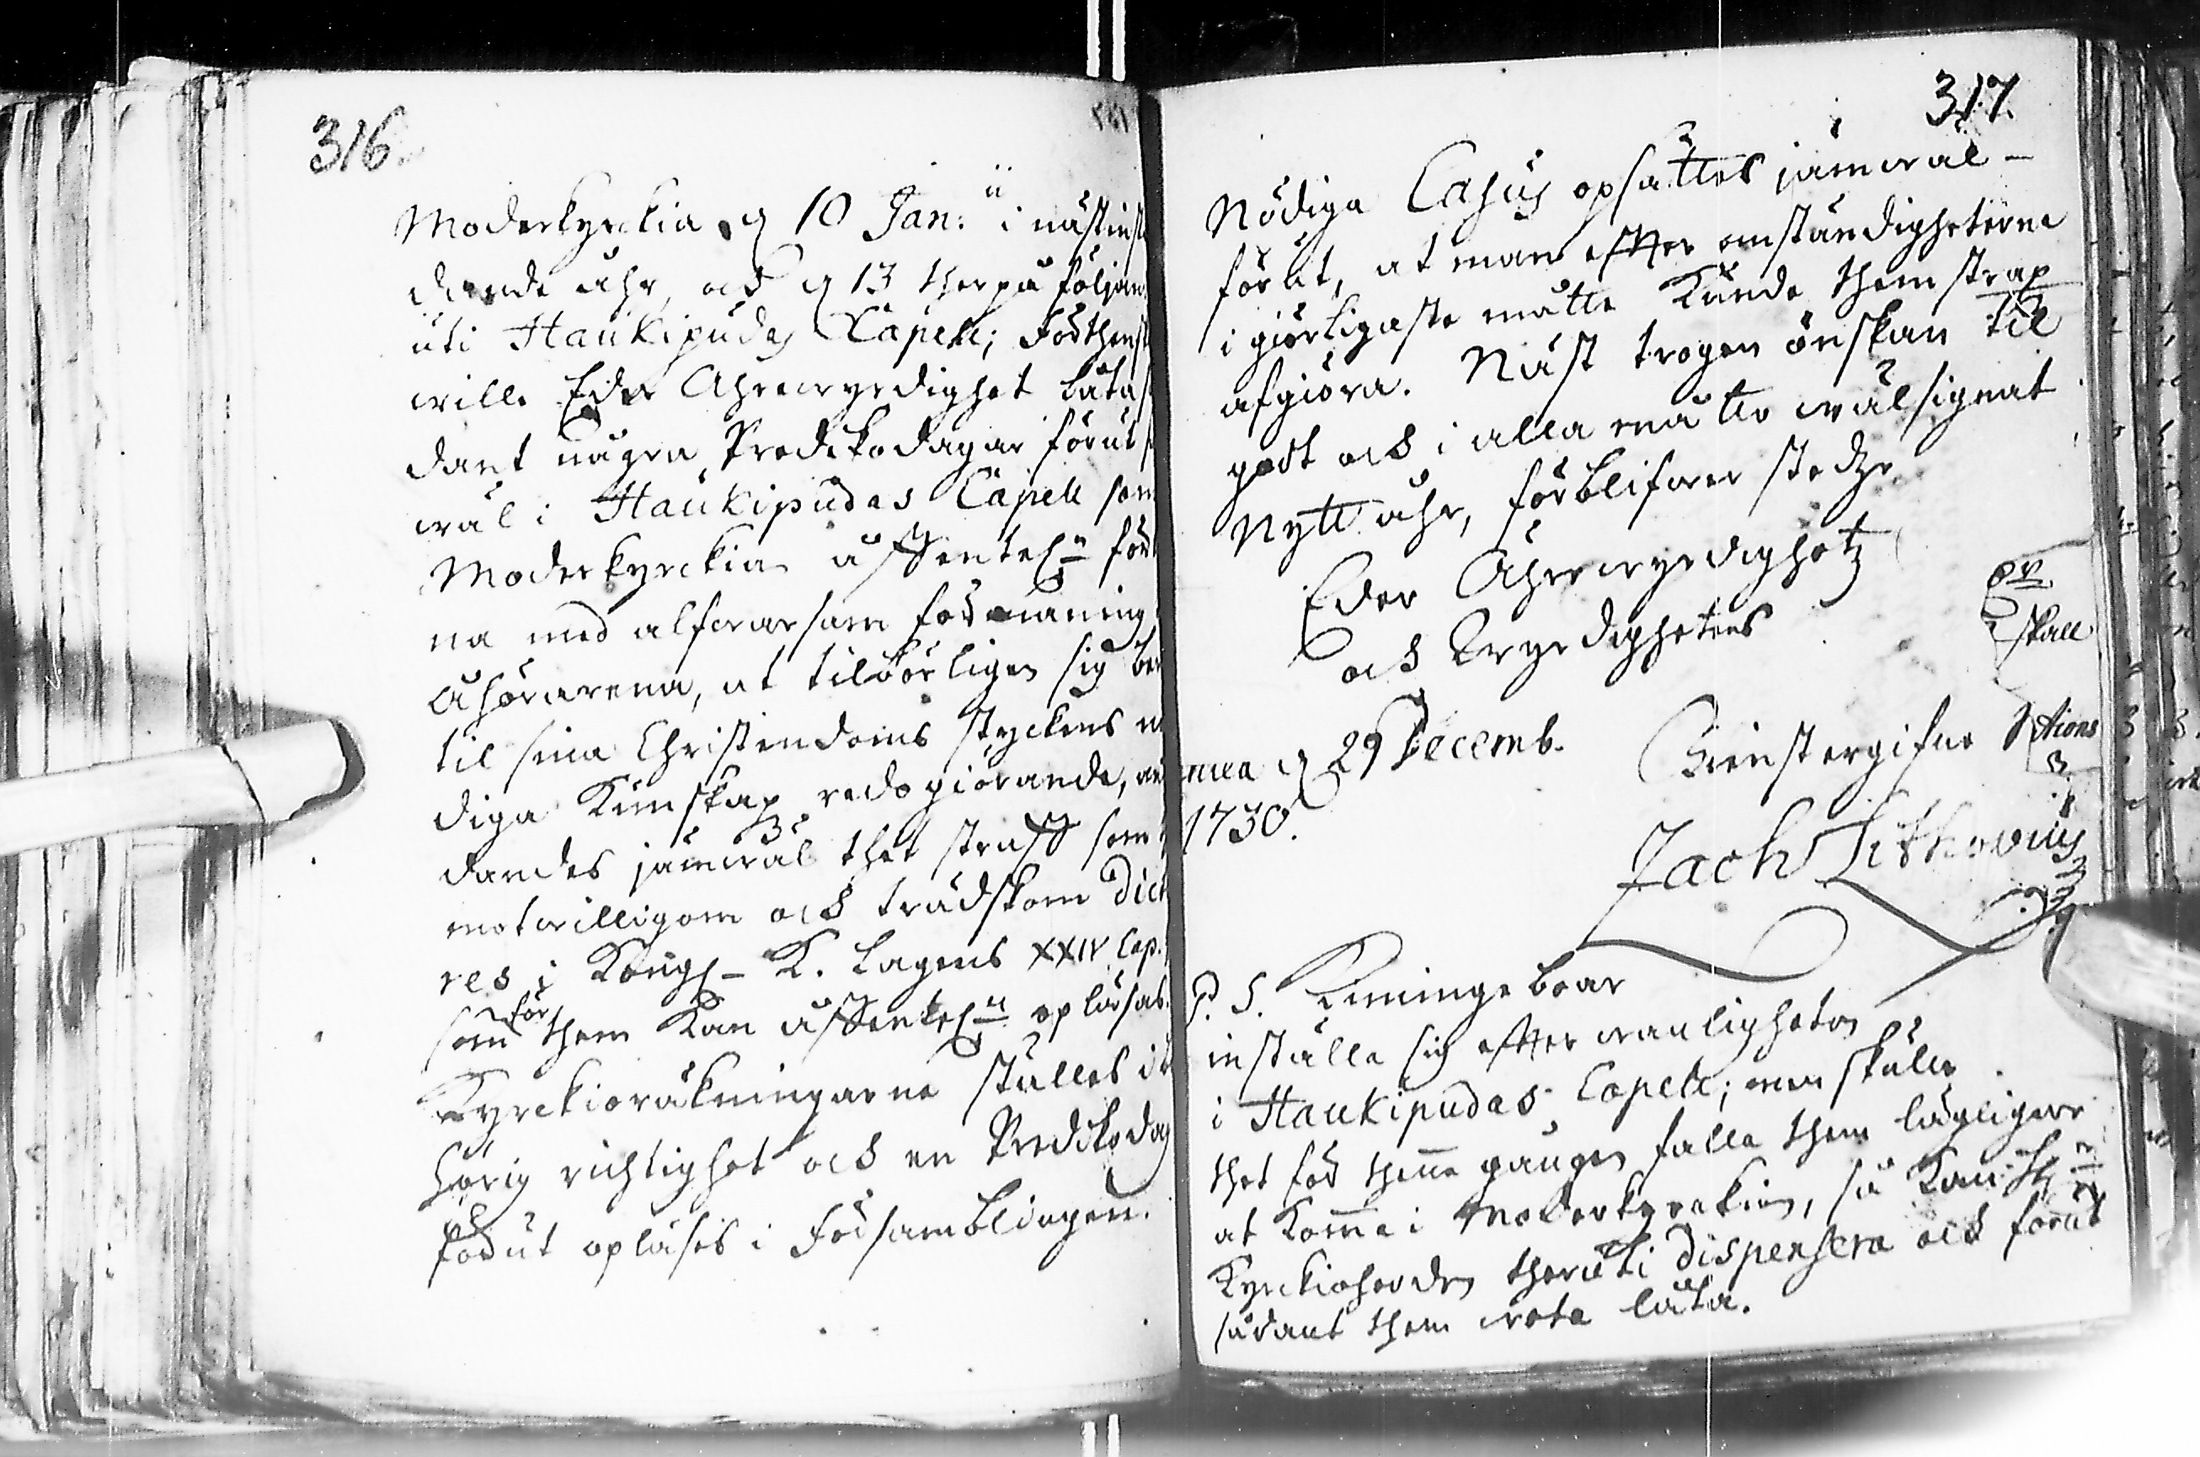 316.
Moderkyrckia d 10 Jan: ii nästinst
dande åhr, och d 13 therpå följan
uti Haukipudas Capell; Förthensk
wille Eder Ährewyrdighet låta så
dant någre Predikodagar förut så
wäl i Haukipudas Capell som
Moderkyrckian
na med alfwarsam förmaning
Åhörarena, at tilbörligen sig be
til sina Christendoms styckers
diga Kunskap redogiörande,
dandes jämwäl thet straff som
motwilligom och trädskom dict
res i Kongl. K. Lagens XXIV Cap.
som för them Kan opläsas.
Kyrckioräkningarne ställes i
hörig richtighet och en Predikodag
förut opläses i Församblingen.
317.
Nödiga Casus opsättes jämwäl
förut, at man effter omständigheterne
i giörligaste måtto Kunde them strax
afgiöra. Näst trogen önskan til
godt och i alla måtto wälsignat
Nytt åhr, förblifwer stedze
Eder Ährewyrdighetz
och Wyrdighetens
skall
d 29 Decemb.
1730.
Tienstergifne
Jach
P. S. Kiminge boar
inställe sig effter wanligheten
i Haukipudas Capell; men skulle
thet för thenne gången falla them lägligare
at Komma i Moderkyrckian, så Kan
Kyrckioherden theruti dispensera och förut
sådant them weta låta.